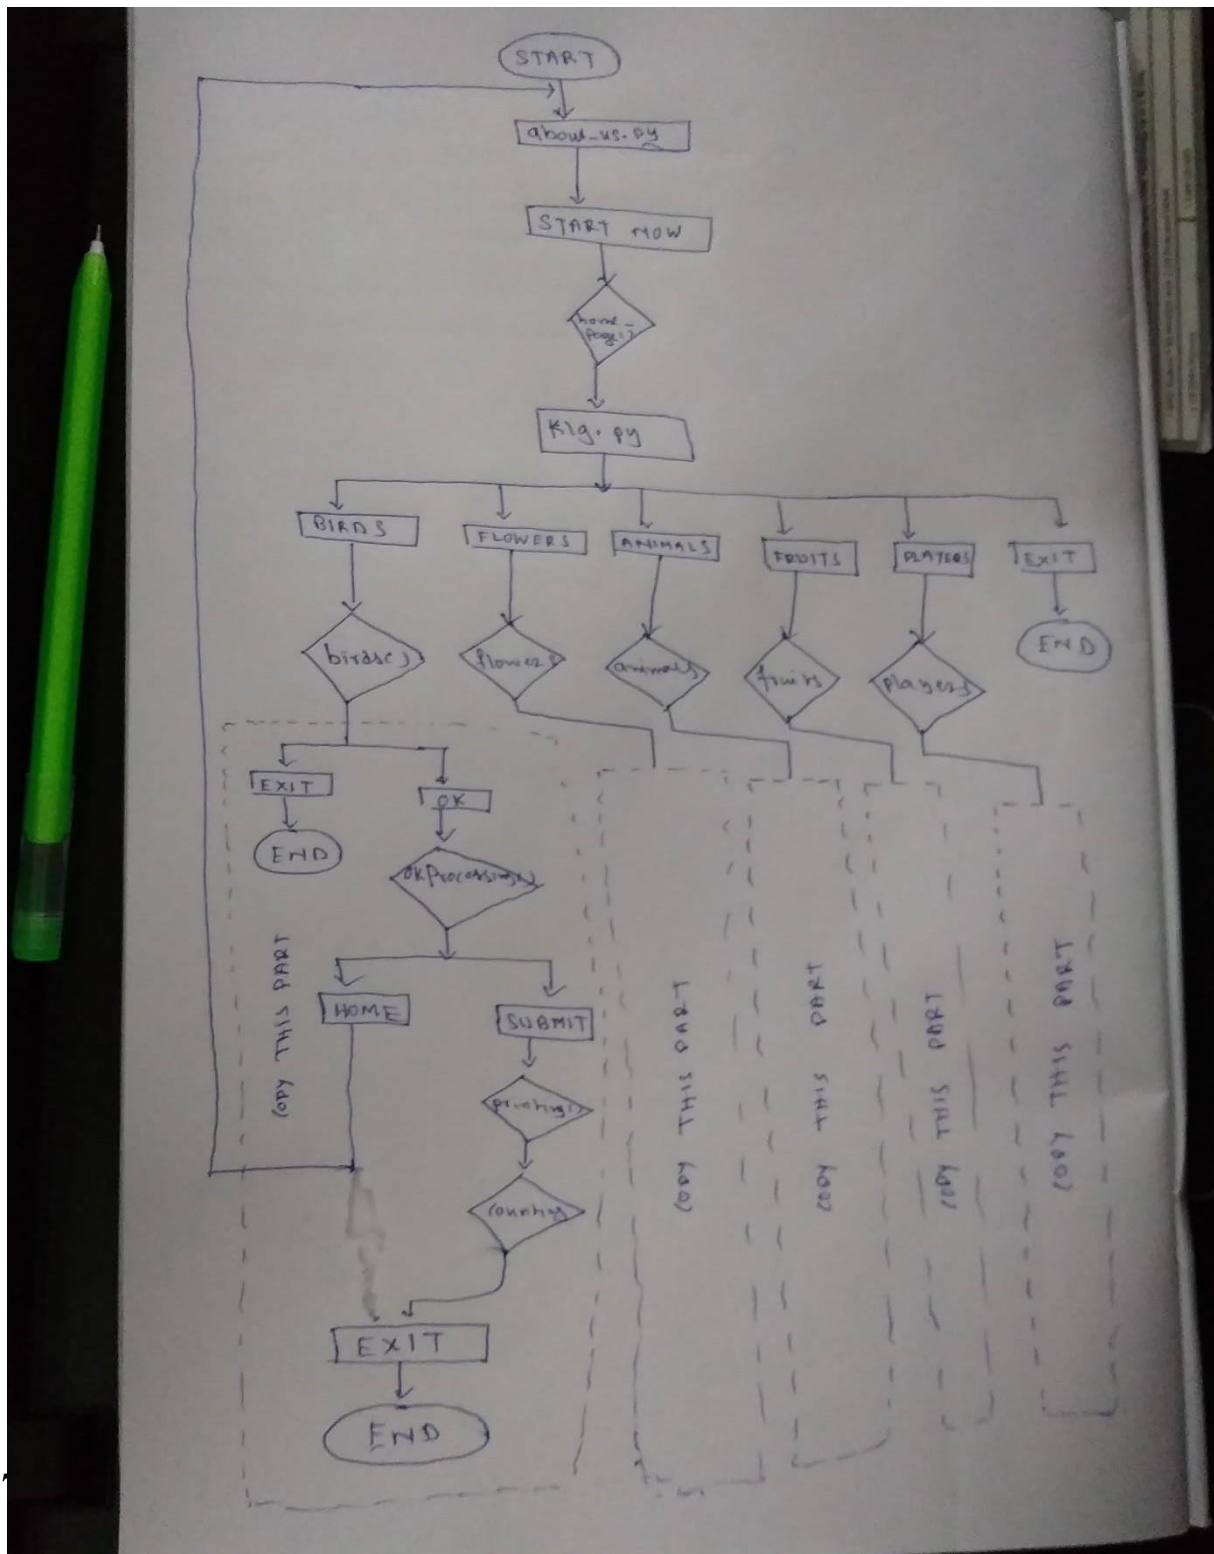 START
about_us.py
START NOW
home_
page()
klg.py
BIRDS
FLOWERS
ANIMALS
FRUITS
PLAYERS
EXIT
birds()
flowers
animals
fruits
players
END
EXIT
OK
END
okProcessing()
COPY THIS PART
HOME
SUBMIT
printing()
counting
EXIT
END
COPY THIS PART
COPY THIS PART
COPY THIS PART
COPY THIS PART